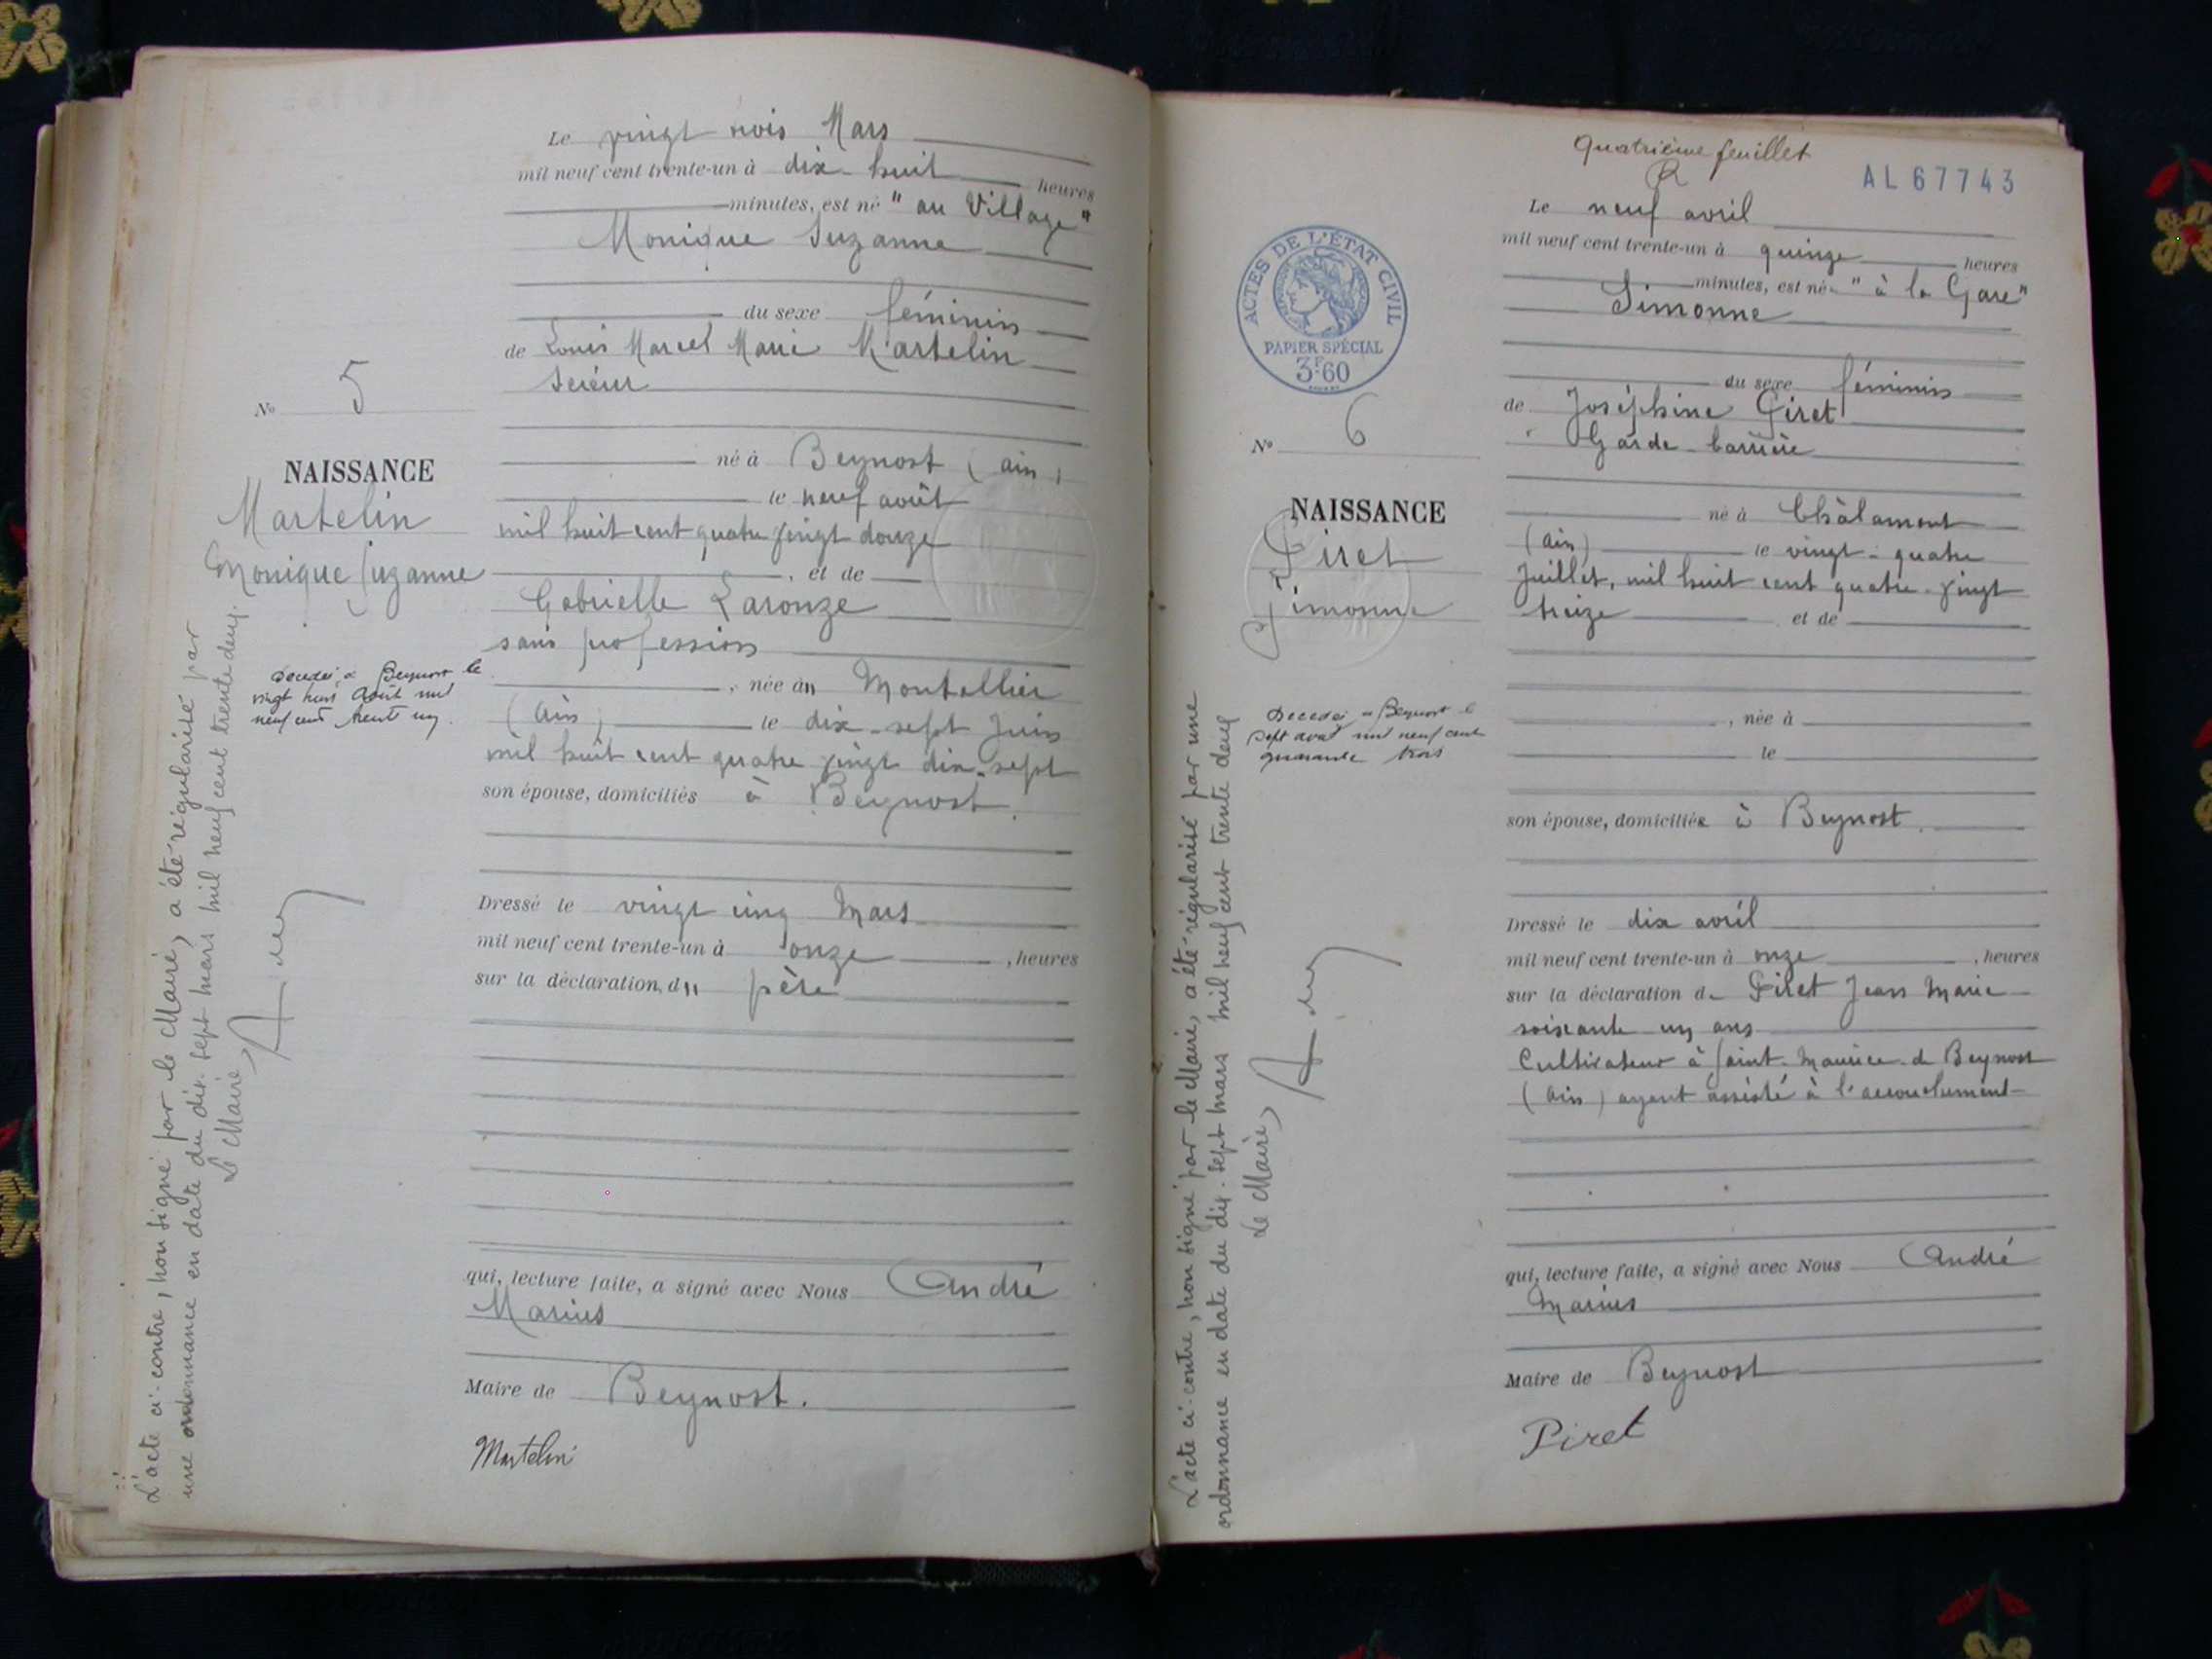 Le vingt trois Mars
mil neuf cent trente-un à dix-huit heures
minutes, est né "au Village"
Monique Suzanne
du sexe féminin
de Louis Marcel Marie Martelin
né à Beynost (ain)
le neuf août
mil huit cent quatre vingt douze
, et de
Gabrielle Laronze
sans profession
, née à Montellier
(Ain) le dix-sept Juin
mil huit cent quatre vingt dix-sept
son épouse, domiciliés à Beynost.
Dressé le vingt cinq Mars
mil neuf cent trente-un à onze , heures
sur la déclaration, du père
qui, lecture faite, a signé avec Nous André
Marius
Maire de Beynost.
Martelin
N° 5
NAISSANCE
Martelin
Monique Suzanne
Décédée à Beynost le
vingt huit Août mil
neuf cent trente un.
L'acte ci-contre, non signé par le Maire, a été régularisé par
une ordonnance en date du dix-sept mars mil neuf cent trente deux.
Le Maire,
Quatrième feuillet
AL 67743
ACTES DE L'ÉTAT CIVIL
PAPIER SPÉCIAL
3F60
Le neuf avril
mil neuf cent trente-un à quinze heures
minutes, est né "à la Gare"
Simonne
du sexe féminin
de Joséphine Piret
Garde-barrière
né à Châlamont
(Ain) le vingt-quatre
Juillet, mil huit cent quatre-vingt
treize et de
, née à
le
son épouse, domiciliée à Beynost.
Dressé le dix avril
mil neuf cent trente-un à onze , heures
sur la déclaration de Piret Jean Marie
soixante un ans
Cultivateur à Saint-Maurice-de Beynost
(Ain) ayant assisté à l'accouchement
qui, lecture faite, a signé avec Nous André
Marius
Maire de Beynost
Piret
N° 6
NAISSANCE
Piret
Simonne
Décédée à Beynost le
sept avril mil neuf cent
quarante trois
L'acte ci-contre, non signé par le Maire, a été régularisé par une
ordonnance en date du dix-sept mars mil neuf cent trente deux
Le Maire,